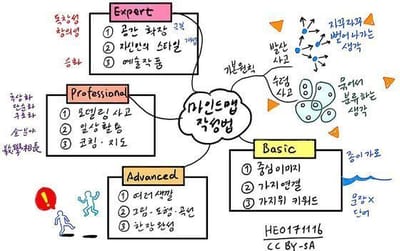 Expert
① 공간 확장
② 자신만의 스타일
③ 예술작품
독창성
창의성
승화
극복
개발
Professional
① 모델링 사고
② 일상활용
③ 코칭·지도
추상화
단순화
구조화
손·뇌
敎學相長
마인드맵
작성법
기본원칙
발산
사고
자뻗
뻗어나가는
생각
수렴
사고
묶어서
분류하는
생각
Basic
① 중심이미지
② 가지연결
③ 가지위 키워드
종이 가로
문장 X
단어
Advanced
① 여러색깔
② 그림·도형·곡선
③ 한장완성
HE0171116
CC BY-SA